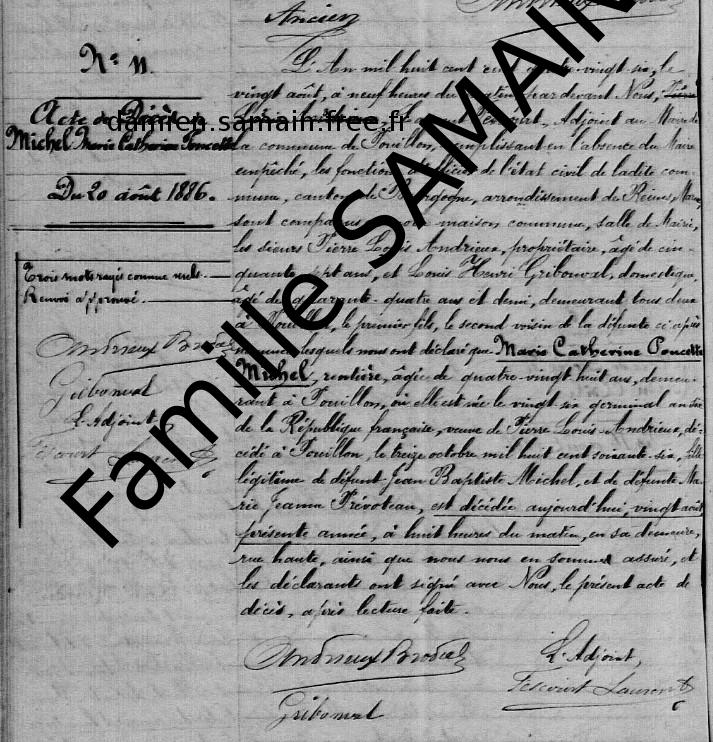 Ancien
Nº 11.
Acte de Décès
Michel Marie Catherine Poncette
Du 20 août 1886.
Trois mots rayés comme nuls.
Renvoi approuvé.
Andrieux Brodal
Gribouval
L'Adjoint,
Fescourt
L'An mil huit cent quatre-vingt-six, le
vingt août, à neuf heures du matin, par devant Nous,
Laurent Fescourt, Adjoint au Maire de
la commune de Pouillon, remplissant en l'absence du Maire
empêché, les fonctions d'officier de l'état civil de ladite com-
mune, canton de Bourgogne, arrondissement de Reims, Marne,
sont comparus en notre maison commune, salle de Mairie,
les sieurs Pierre Louis Andrieux, propriétaire, âgé de cin-
quante sept ans, et Louis Henri Gribouval, domestique,
âgé de quarante-quatre ans et demi, demeurant tous deux
à Pouillon, le premier fils, le second voisin de la défunte ci après
nommée, lesquels nous ont déclaré que Marie Catherine Poncette
Michel, rentière, âgée de quatre-vingt huit ans, demeu-
rant à Pouillon, où elle est née le vingt six germinal an six
de la République française, veuve de Pierre Louis Andrieux, dé-
cédé à Pouillon, le treize octobre mil huit cent soixante-six, fille
légitime de défunt Jean Baptiste Michel, et de défunte Ma-
rie Jeanne Prévoteau, est décédée aujourd'hui, vingt août
présente année, à huit heures du matin, en sa demeure,
rue haute, ainsi que nous nous en sommes assuré, et
les déclarants ont signé avec Nous, le présent acte de
décès, après lecture faite.
Andrieux Brodal
L'Adjoint,
Gribouval
Fescourt Laurent
damien.samain.free.fr
Famille SAMAIN